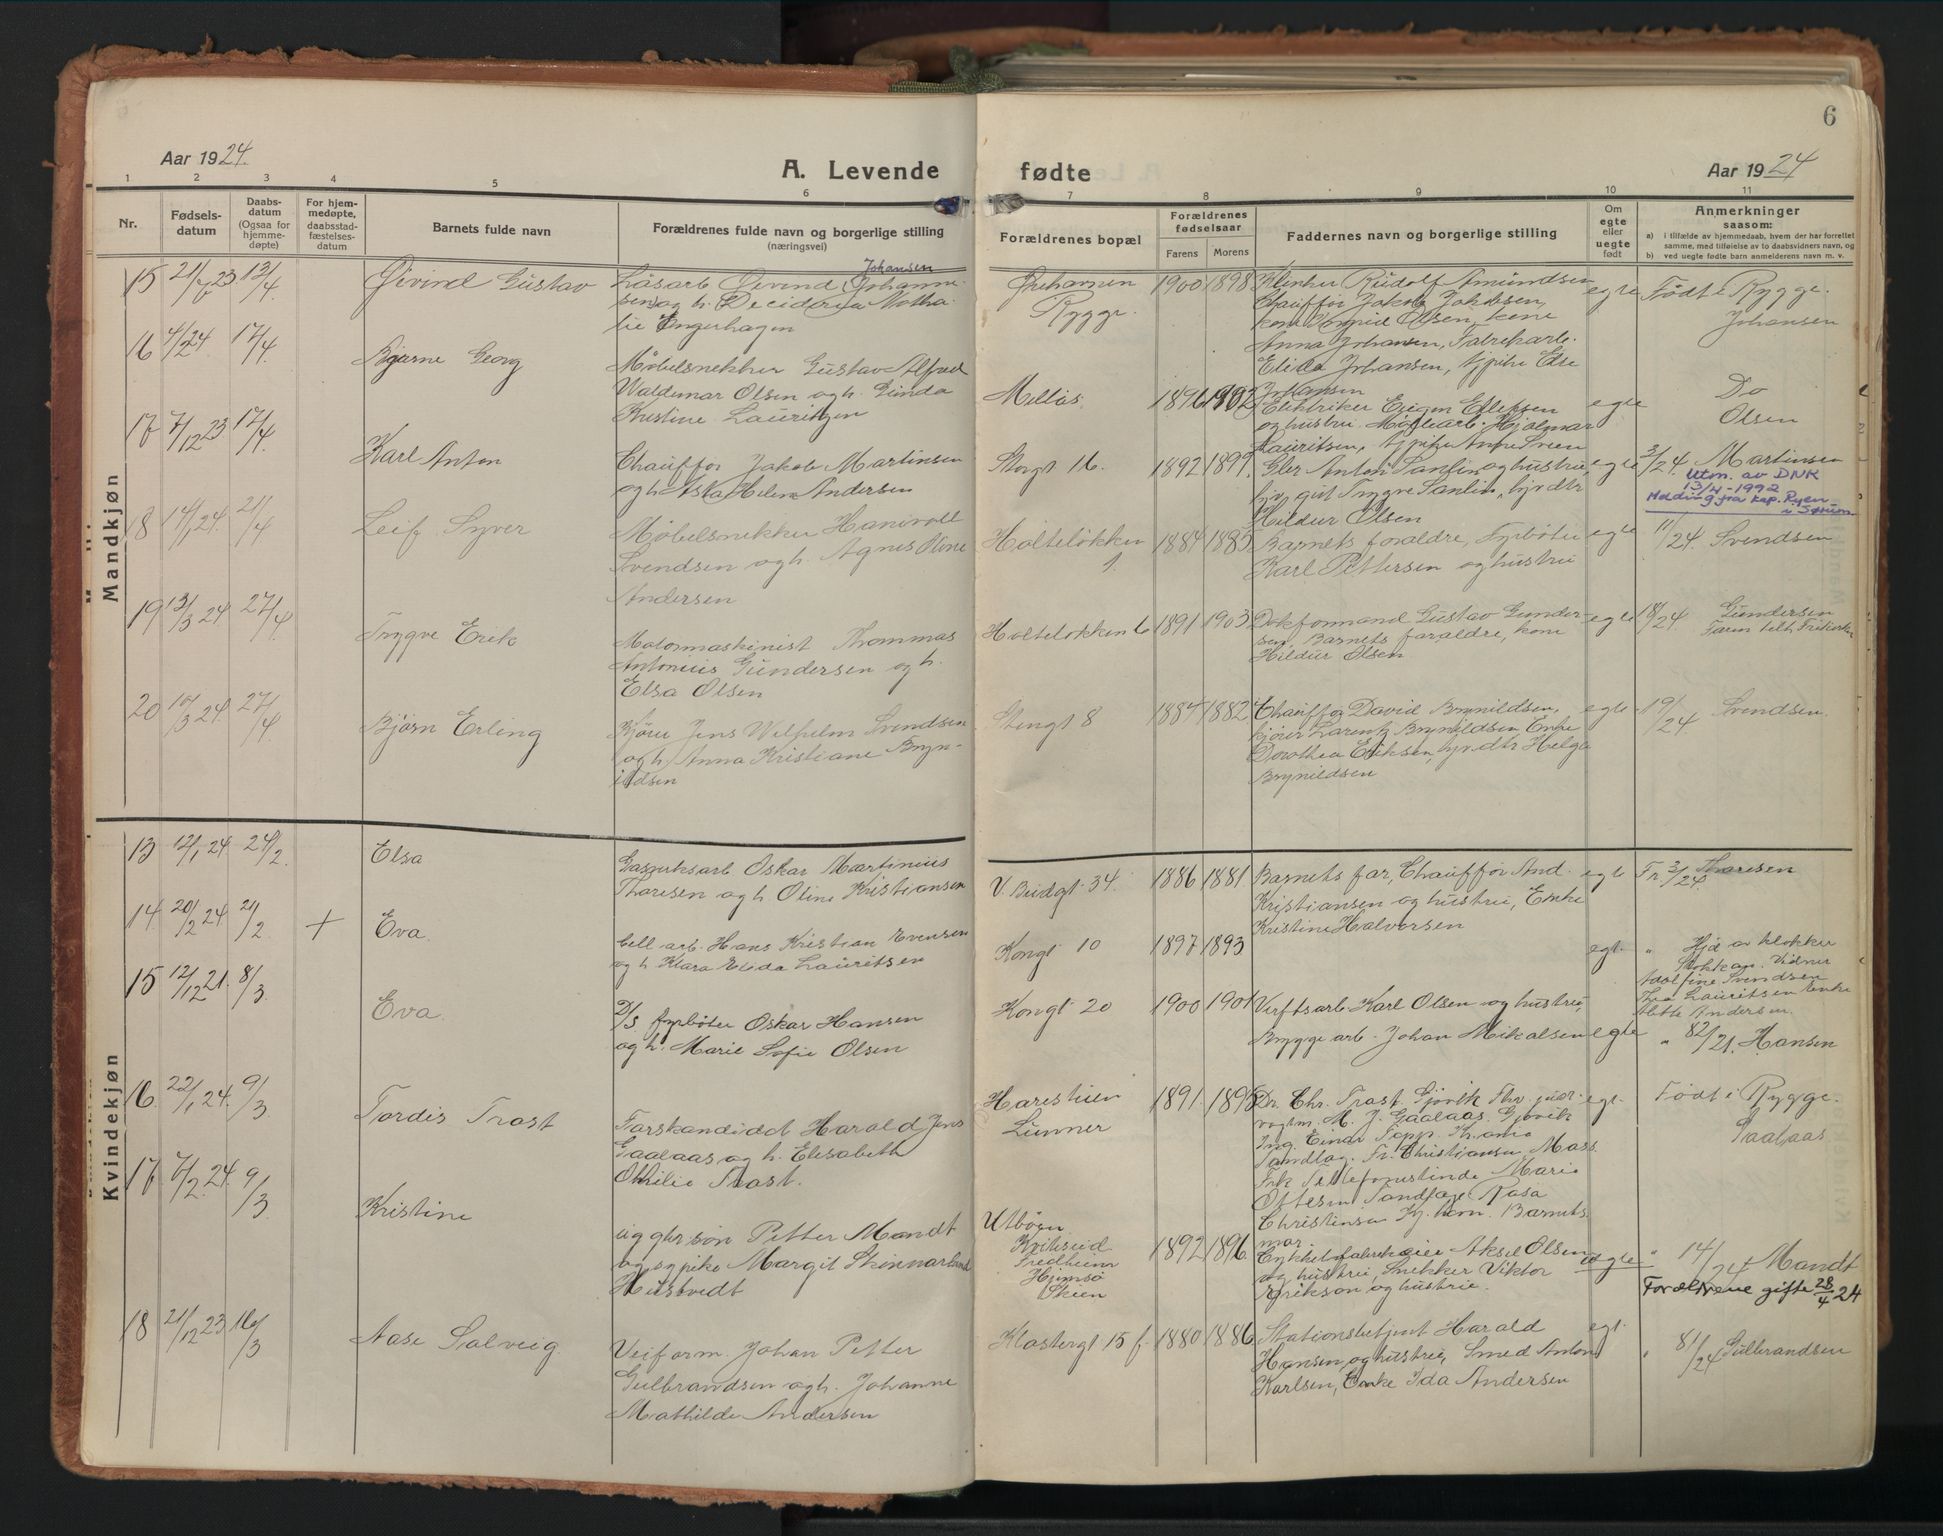 6
Aar 1924.
A. Levende
fødte
Aar 1924
1 2 3 4 5 6 7 8 9 10 11
Nr.
Fødsels-
datum
Daabs-
datum
(Ogsaa for
hjemme-
døpte)
For hjem-
medøpte,
daabsstad-
fæstelses-
datum
Barnets fulde navn
Forældrenes fulde navn og borgerlige stilling
(næringsvei)
Forældrenes bopæl
Forældrenes
fødselsaar
Farens
Morens
Faddernes navn og borgerlige stilling
Om
egte
eller
uegte
født
Anmerkninger
saasom:
a) i tilfælde av hjemmedaab, hvem der har forrettet
samme, med tilføielse av to daabsvidners navn, og
b) ved uegte fødte barn anmelderens navn m. v.
Mandkjøn
15 13/4 Øivind Gustav
Johansen
Løsarb Øivind Johanne-
sen og h.
lie Engerhagen
Rygge.
1900 1898
Rudolf Amundsen
Chauffør Jakob Jakobsen,
kone Olsen, kone
Anna Johansen, Fabrekarb.
Elida Johansen, tjpike Else
Johansen
egte
Født i Rygge.
Johansen
16 4/2 24 17/4 Bjarne Georg
Møbelsnekker Gustav Alfred
Waldemar Olsen og h. Gunda
Kristine Lauritzen
Melløs
1902
Elektriker Ellefsen
og hustru. Hjalmar
Lauritsen,
egte
Do
Olsen
17 7/12 23 17/4 Karl Anton
Chauffør Jakob Martinsen
og h Aska Helene Andersen
Storgt 16.
1892 1899.
Anton Sanlin og hustru,
gut Trygve Sanlin, hjv dtr
Hildur Olsen
egte
3/24. Martinsen
Utm. av DNK
13/4-1992
Melding fra kap. Ryen
i Sørum.
18 14/1 24. 21/4 Leif Syver
Møbelsnekker Hanivoll
Svendsen og h. Agnes Oline
Andersen
Holteløkken
1.
1884 1885
Barnets foraldre, Fyrbøter
Karl Pettersen og hustru
egte
11/24. Svendsen
19 13/3 24 27/4 Trygve Erik
Motormaskinist Thommas
Antonius Gundersen og h.
Elsa Olsen
Holteløkken 6
1891 1903
Dokformand Gustav Gunder-
sen, Barnets foraldre, kone
Hildur Olsen
egte
18/24. Gundersen
20 10/3 24. 27/4 Bjørn Erling
Kjører Jens Wilhelm Svendsen
og h. Anna Kristiane Bryn-
ildsen
Stengt 8
1884 1882
Chauffør David Brynildsen,
kjører Brynildsen Enke
Dorothea Eriksen, hjv dtr Helga
Brynildsen
egte
19/24 Svendsen.
Kvindekjøn
13 12/1 24. 24/2. Elsa
Gasverksarb Oskar Martinius
Thoresen og h. Oline Kristiansen
V. Brudgt. 34.
1886 1881
Barnets far, Chauffør And.
Kristiansen og hustru, Enke
Kristine Halvorsen
egte
Fr. 3/24. Thoresen
14 20/2 24 21/2 + Eva.
Cell arb. Hans Kristian Evensen
og h Klara Elida Lauritsen
Kongt 10
1897 1893
egt.
" Hjd av klokker
Stokkan. Vidner
Svendsen
Lauritsen Enke
Andersen.
15 12/12 21. 8/3. Eva.
D/S fyrbøter Oskar Hansen
og h. Marie Sofie Olsen
Kongt 20
1900 1901
Verftsarb Karl Olsen og hustru,
Brygge arb. Johan Mikalsen
egte
" 82/21. Hansen
16. 22/1 24. 9/3. Tordis Trost
Forskandidat Harald Jens
Gaalaas og h. Elisabeth
Othilie Trost.
Harestuen
Lunner
1891. 1895
Dr. Chr. Trost. Gjøvik
M. J. Gaalaas. Gjøvik
Ing Einar
Fr. Christiansen, Moss.
Frk Telefonistinde Marie
Ottesen
Barnets
mor.
egt.
Født i Rygge.
Gaalaas.
17. 7/2. 24. 9/3. Kristine
ug gbr søn Petter Mandt
og ug pike Margit Skinnarland
Hustvedt
Utbøen
Kviteseid
Fredheim
Hjemsø
Skien
1892 1896.
Aksel Olsen
og hustru, Snekker Viktor
Erikson og hustru.
uegte
" 14/24 Mandt
Forældrene gifte 28/4 24
18 21/12 23 16/3 Aase Solveig
Veiform. Johan Petter
Gulbrandsen og h. Johanne
Mathilde Andersen
Klostergt 15 f.
1880 1886
Stationsbetjent Harald
Hansen, og hustru, Smed Anton
Karlsen, Enke Ida Andersen
egt.
" 81/24 Gulbrandsen